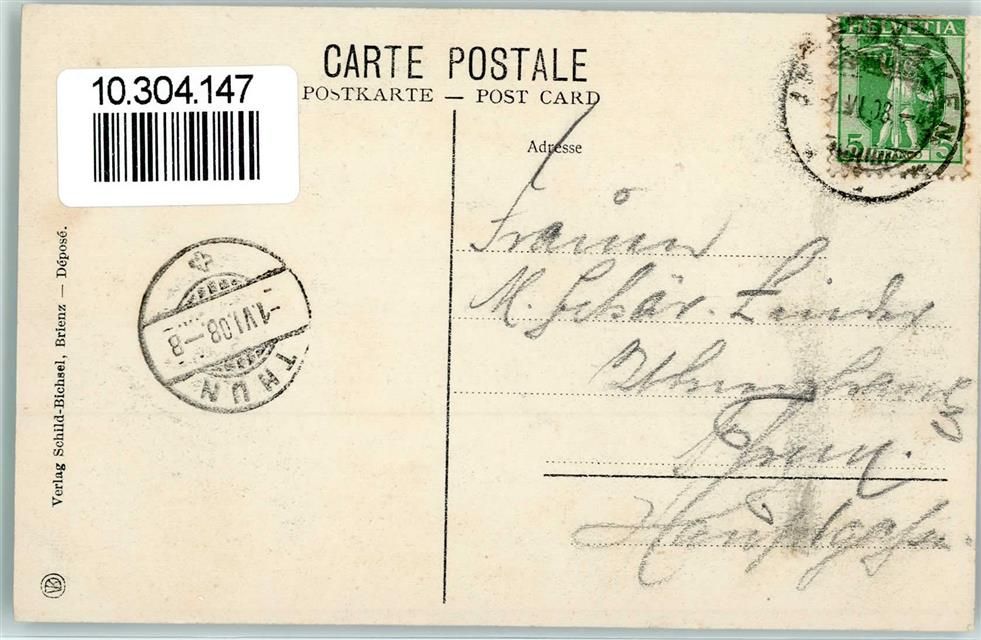 CARTE POSTALE
POSTKARTE — POST CARD
10.304.147
HELVETIA
5 FRANCO 5
VI.08.
Adresse
Verlag Schild-Bichsel, Brienz — Déposé.
-1.VI.08.-8
THUN
M. Schär-Linder
Thun.